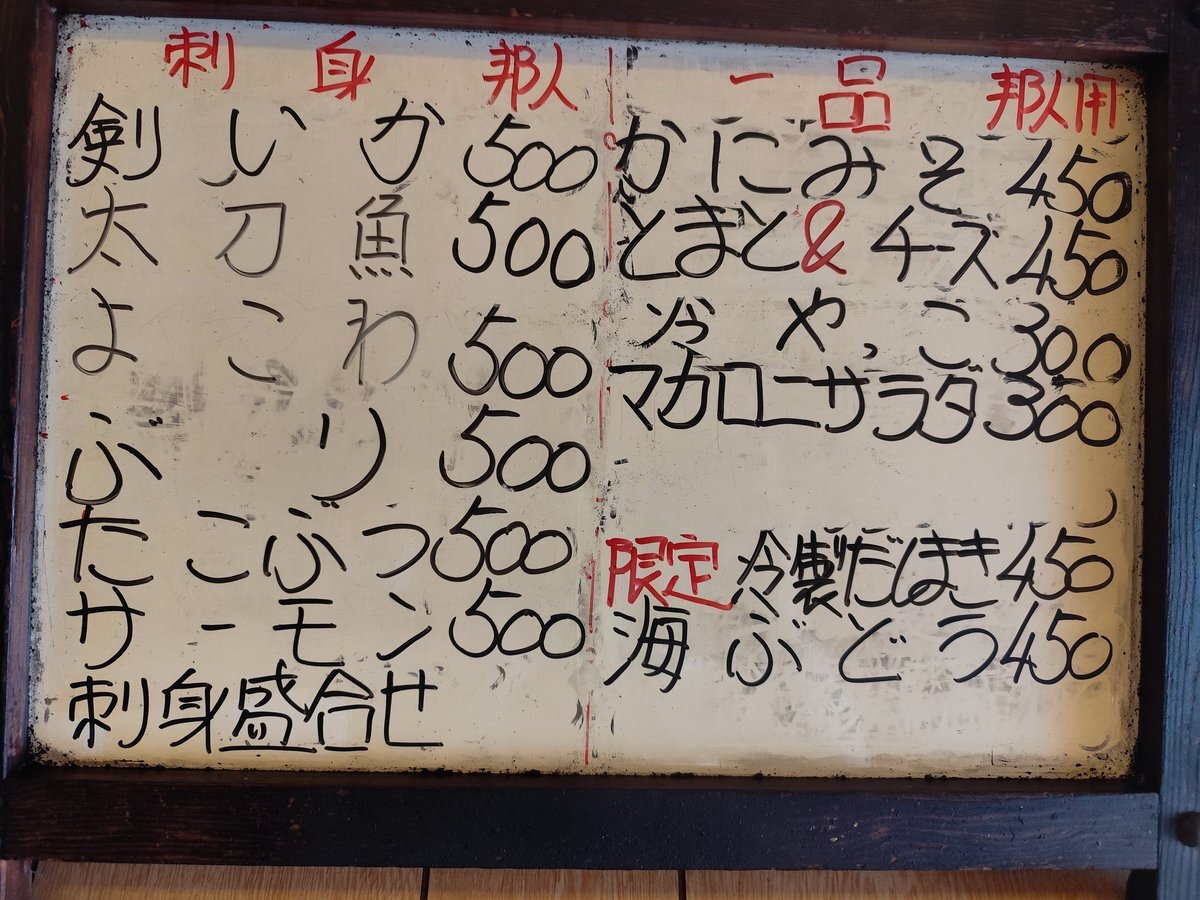 刺身 邦人
剣いか 500
太刀魚 500
よこわ 500
ぶり 500
たこぶつ 500
サーモン 500
刺身盛合せ
一品 邦人用
かにみそ 450
とまと&チーズ 450
冷やっこ 300
マカロニサラダ 300
限定 冷製だしまき 450
海ぶどう 450